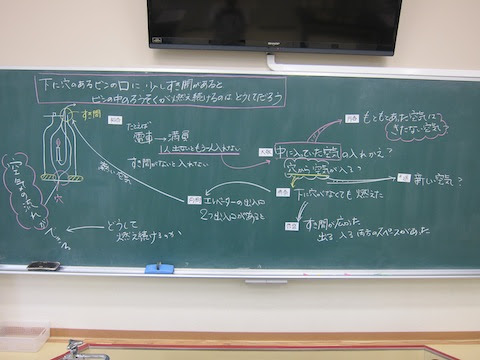 SHARP
下に穴のあるビンの口に少しすき間があると
ビンの中のろうそくが燃え続けるのはどうしてだろう
すき間
たとえば
電車→満員
1人出ないともう一人入れない
すき間がないと入れない
もともとあった空気は
きたない空気
中に入っていた空気の入れかえ?
穴から空気が入る?
新しい空気?
下に穴がなくても燃えた
エレベーターの出入口
2つ出入口があると
すき間が広かった
出る入る両方のスペースがあった
空気の流れが
穴
どうして